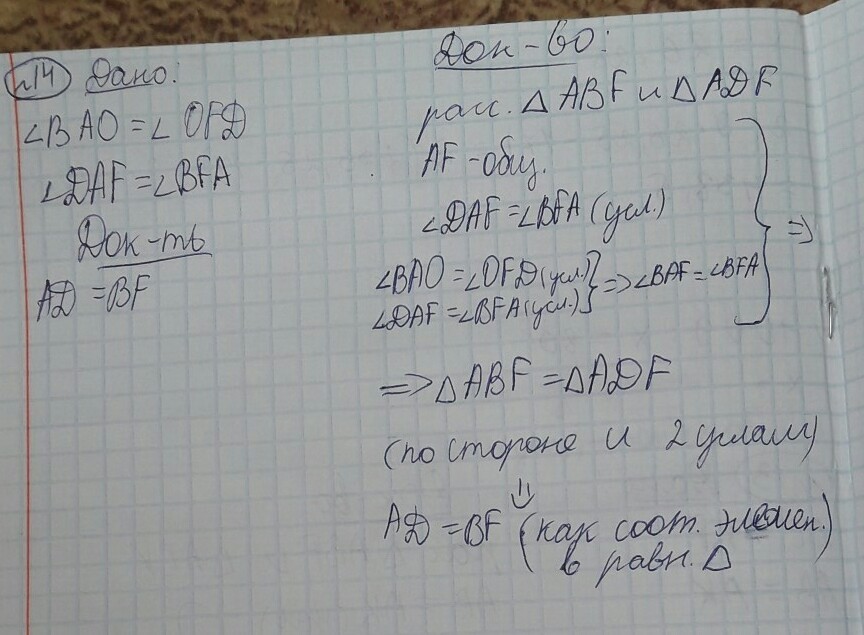 н14 Дано:
∠BAO = ∠OFD
∠DAF = ∠BFA
Док-ть
AD = BF
Док-во:
расс. △ABF и △ADF
AF - общ.
∠DAF = ∠BFA (усл.)
∠BAO = ∠OFD (усл.)
∠DAF = ∠BFA (усл.) } => ∠BAF = ∠BFA } =>
=> △ABF = △ADF
(по стороне и 2 углам)
⇓
AD = BF (как соот. элемен.
в равн. △)